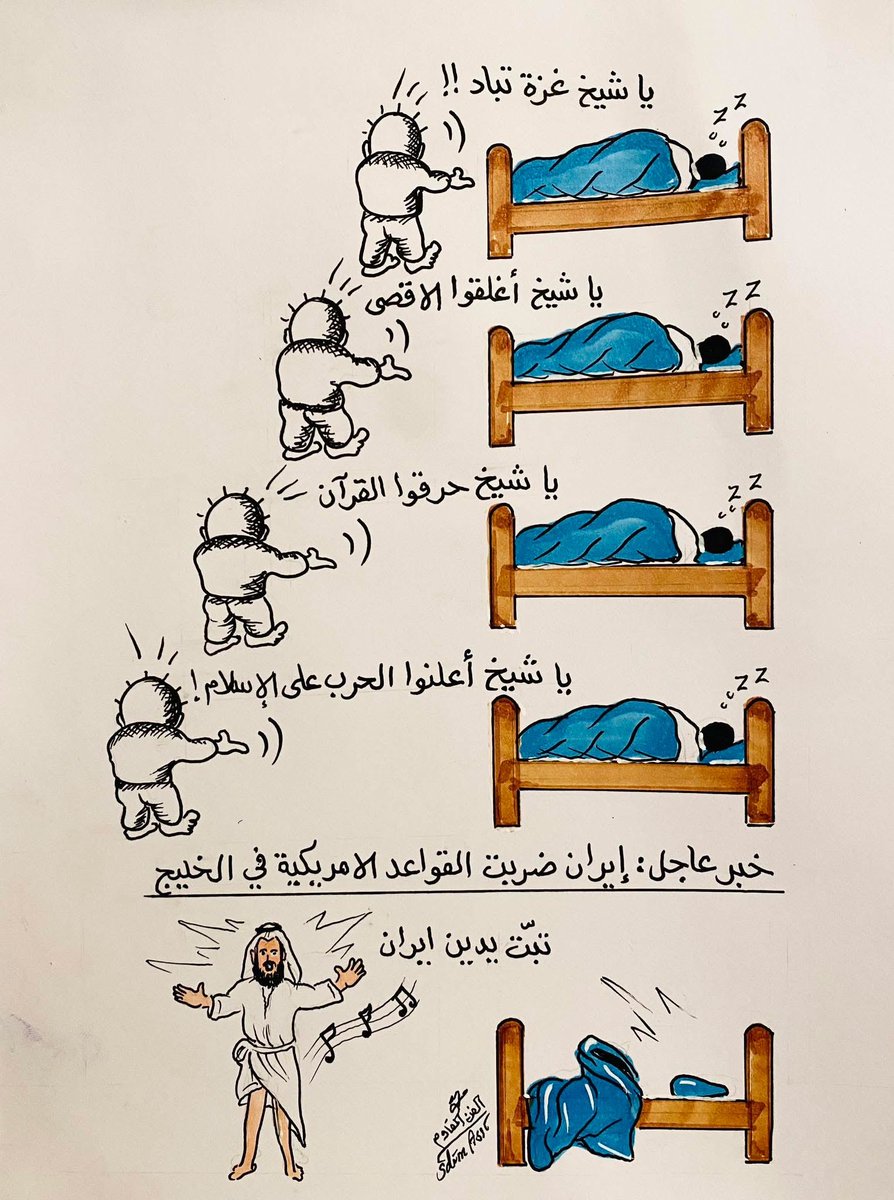 يا شيخ غزة تباد !!
z z
يا شيخ أغلقوا الاقصى
z z
يا شيخ حرقوا القرآن
z z
يا شيخ أعلنوا الحرب على الإسلام !
z z
خبر عاجل: إيران ضربت القواعد الامريكية في الخليج
تبّت يدين ايران
الفن المقاوم